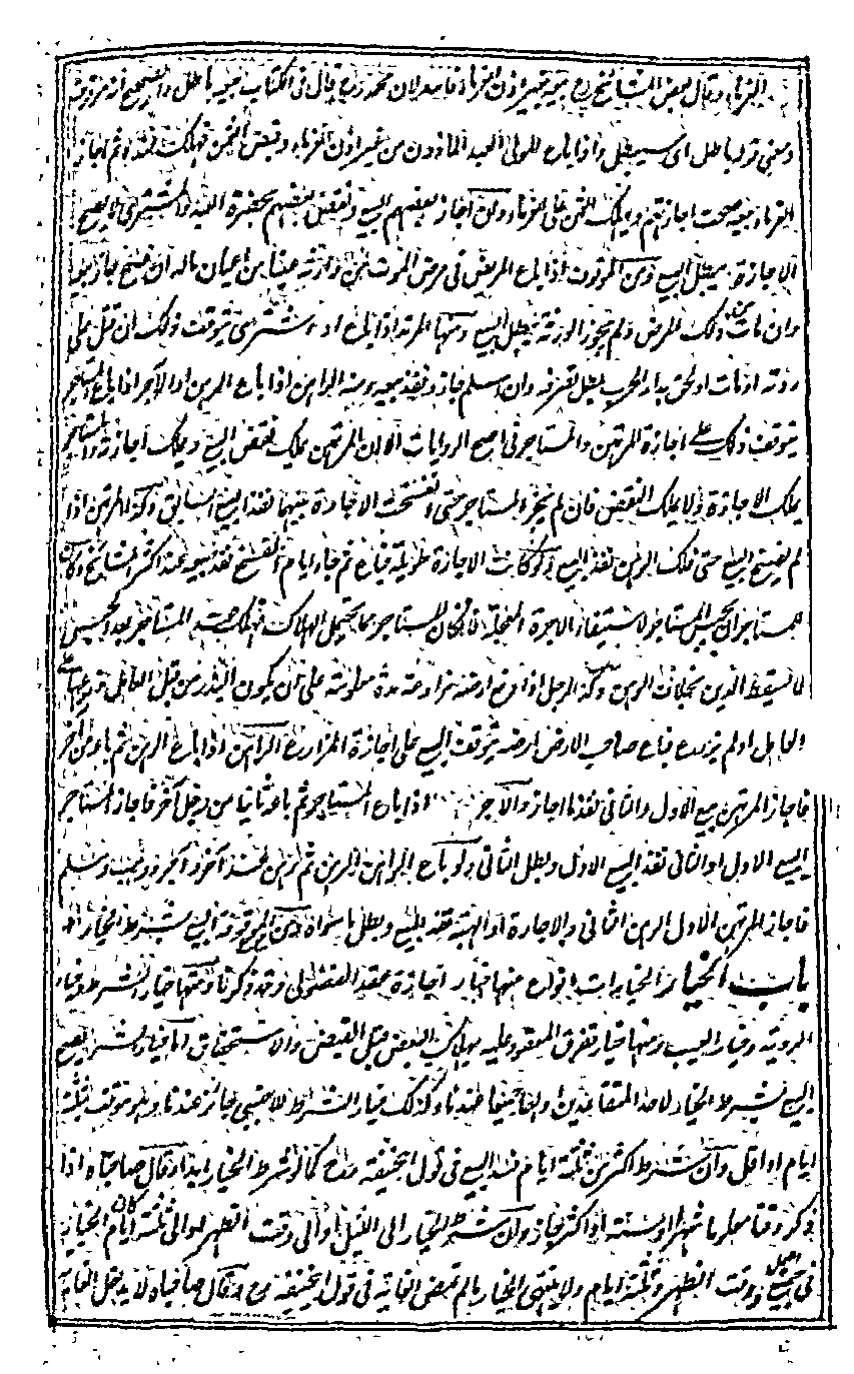 الغرماء وقال بعض المشايخ رح بيعه بغير اذن الغرماء فاسد لان محمد رح قال فى الكتاب بيعه باطل والصحيح انه موقوف
ومعنى قوله باطل اى سيبطل واذا باع المولى العبد الماذون من غير اذن الغرماء وقبض الثمن فهلك عنده ثم اجاز
الغرماء بيعه صحت اجازتهم ويهلك الثمن على الغرماء وان اجاز بعضهم البيع ونقض بعضهم بحضرة العبد والمشترى لا يصح
الاجازة ويبطل البيع ومن الموقوف اذا باع المريض فى مرض الموت من وارثه عينا من اعيان ماله ان صح جاز بيعه
وان مات من ذلك المرض ولم يجز الورثة يبطل البيع ومنها المرتد اذا باع او اشترى يتوقف ذلك ان قتل على
ردته او مات او لحق بدار الحرب يبطل تصرفه وان اسلم جاز ونفذ بيعه ومنه الراهن اذا باع الرهن او الآجر اذا باع المستاجر
يتوقف ذلك على اجازة المرتهن والمستاجر فى اصح الروايات الا ان المرتهن يملك نقض البيع ويملك اجازته والمستاجر
يملك الاجازة ولا يملك النقض فان لم يجز المستاجر حتى انفسخت الاجارة بينهما نفذ البيع السابق وكذا المرتهن اذا
لم يفسخ البيع حتى فك الرهن نفذ البيع ولو كانت الاجارة طويلة فباع ثم جاء ايام الفسخ نفذ بيعه عند اكثر المشايخ وكان
للمستاجر ان يحبس المستاجر لاستيفاء الاجرة المعجلة فان كان المستاجر مما يحتمل الهلاك فهلك عند المستاجر بعد الحبس
لا يسقط الدين بخلاف الرهن وكذا الرجل اذا دفع ارضه مزارعة مدة معلومة على ان يكون البذر من قبل العامل فزرعها
العامل او لم يزرع فباع صاحب الارض ارضه يتوقف البيع على اجازة المزارع الراهن اذا باع الرهن ثم باعه من آخر
فاجاز المرتهن بيع الاول والثانى نفذ ما اجاز والآجر اذا باع المستاجر ثم باعه ثانيا من رجل آخر فاجاز المستاجر
البيع الاول او الثانى نفذ البيع الاول وبطل الثانى ولو باع الراهن الرهن ثم رهن عند آخر او آجر او وهب وسلم
فاجاز المرتهن الاول الرهن الثانى والاجارة او الهبة نفذ البيع وبطل ما سواه ومن الموقوفة البيع بشرط الخيار
باب الخيار الخيارات انواع منها خيار اجازة عقد الفضولى وقد ذكرنا ومنها خيار الشرط وخيار
الروية وخيار العيب ومنها خيار تفرق المعقود عليه بهلاك البعض قبل القبض والاستحقاق اما خيار الشرط يصح
البيع بشرط الخيار لاحد المتعاقدين او لهما جميعا عندنا وكذلك خيار الشرط للاجنبى جائز عندنا وهو موقت بثلثة
ايام او اقل وان شرط اكثر من ثلثة ايام فسد البيع فى قول ابيحنيفة رح كما لو شرط الخيار ابدا وقال صاحباه اذا
ذكر وقتا معلوما شهرا او سنة او اكثر جاز وان شرط الخيار الى الليل او الى وقت الظهر او الى ثلثة ايام كان الخيار
فى جميع الليل ووقت الظهر وثلثة ايام ولا ينتهى الخيار ما لم تمض الغاية فى قول ابيحنيفة رح وقال صاحباه لا يدخل الغاية